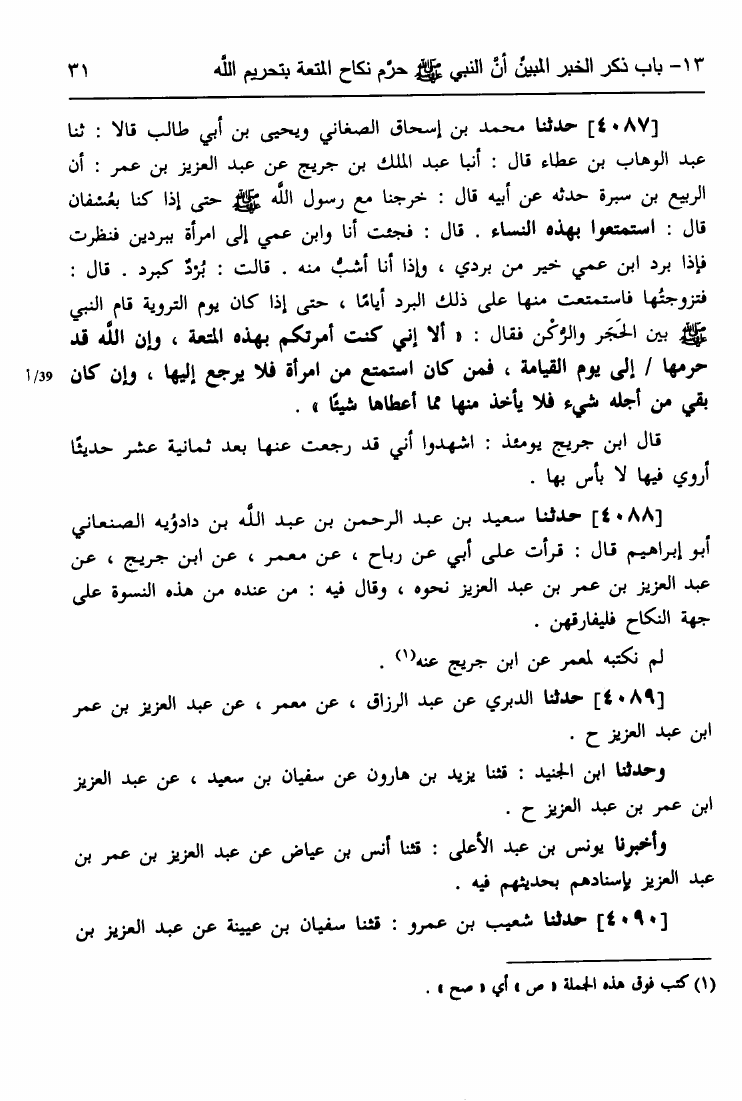 ١٣- باب ذكر الخبر المبينُ أنَّ النبي ﷺ حرَّم نكاح المتعة بتحريم اللَّه ٣١
[٤٠٨٧] حدثنا محمد بن إسحاق الصغاني ويحيى بن أبي طالب قالا : ثنا
عبد الوهاب بن عطاء قال : أنبا عبد الملك بن جريج عن عبد العزيز بن عمر : أن
الربيع بن سبرة حدثه عن أبيه قال : خرجنا مع رسول اللَّه ﷺ حتى إذا كنا بعُسْفان
قال : استمتعوا بهذه النساء . قال : فجئت أنا وابن عمي إلى امرأة ببردين فنظرت
فإذا برد ابن عمي خير من بردي ، وإذا أنا أشبُّ منه . قالت : بُرْدٌ كبرد . قال :
فتزوجتُها فاستمتعت منها على ذلك البرد أيامًا ، حتى إذا كان يوم التروية قام النبي
ﷺ بين الحَجَر والرُّكْن فقال : « ألا إني كنت أمرتكم بهذه المتعة ، وإن اللَّه قد
حرمها / إلى يوم القيامة ، فمن كان استمتع من امرأة فلا يرجع إليها ، وإن كان 39/أ
بقي من أجله شيء فلا يأخذ منها مما أعطاها شيئًا » .
قال ابن جريج يومئذ : اشهدوا أني قد رجعت عنها بعد ثمانية عشر حديثًا
أروي فيها لا بأس بها .
[٤٠٨٨] حدثنا سعيد بن عبد الرحمن بن عبد اللَّه بن دادوُيه الصنعاني
أبو إبراهيم قال : قرأت على أبي عن رباح ، عن معمر ، عن ابن جريج ، عن
عبد العزيز بن عمر بن عبد العزيز نحوه ، وقال فيه : من عنده من هذه النسوة على
جهة النكاح فليفارقهن .
لم نكتبه لمعمر عن ابن جريج عنه(١) .
[٤٠٨٩] حدثنا الدبري عن عبد الرزاق ، عن معمر ، عن عبد العزيز بن عمر
ابن عبد العزيز ح .
وحدثنا ابن الجنيد : قثنا يزيد بن هارون عن سفيان بن سعيد ، عن عبد العزيز
ابن عمر بن عبد العزيز ح .
وأخبرنا يونس بن عبد الأعلى : قثنا أنس بن عياض عن عبد العزيز بن عمر بن
عبد العزيز بإسنادهم بحديثهم فيه .
[٤٠٩٠] حدثنا شعيب بن عمرو : قثنا سفيان بن عيينة عن عبد العزيز بن
(١) كتب فوق هذه الجملة « ص » أي « صح » .